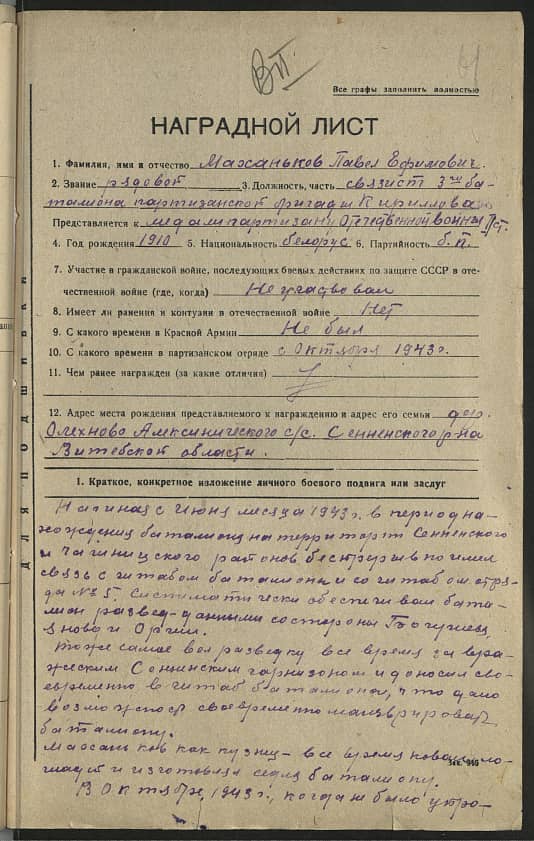 ВП
Все графы заполнить полностью
НАГРАДНОЙ ЛИСТ
1. Фамилия, имя и отчество Маханьков Павел Ефимович.
2. Звание рядовой 3. Должность, часть связист 3го ба-
талиона партизанской бригады Кириллова
Представляется к медали партизану Отечественной войны II ст.
4. Год рождения 1910 5. Национальность белорус 6. Партийность б.п.
7. Участие в гражданской войне, последующих боевых действиях по защите СССР в оте-
чественной войне (где, когда) Не участвовал
8. Имеет ли ранения и контузии в отечественной войне Нет
9. С какого времени в Красной Армии Не был
10. С какого времени в партизанском отряде с Октября 1943г.
11. Чем ранее награжден (за какие отличия)
12. Адрес места рождения представляемого к награждению и адрес его семьи дер.
Олехново Алексинического с/с. Сенненского р-на
Витебской области.
1. Краткое, конкретное изложение личного боевого подвига или заслуг
Начиная с Июня месяца 1943г. в период на-
хождения баталиона на территории Сенненского
и Чашницкого районов беспрерывно имел
связь с штабом баталиона и со штабом отря-
да № 5. Систематически обеспечивал бата-
лион развед-данными со стороны
и Орши.
Тоже самое вел разведку все время за вра-
жеским Сенненским гарнизоном и доносил сво-
евременно в штаб баталиона, что дало
возможность своевременно маневрировать
баталиону.
Маханьков как кузнец - все время ковал ло-
шадей и изготовлял седла баталиону.
В Октябре 1943г., когда не было устро-
ДЛЯ ПОДШИВКИ